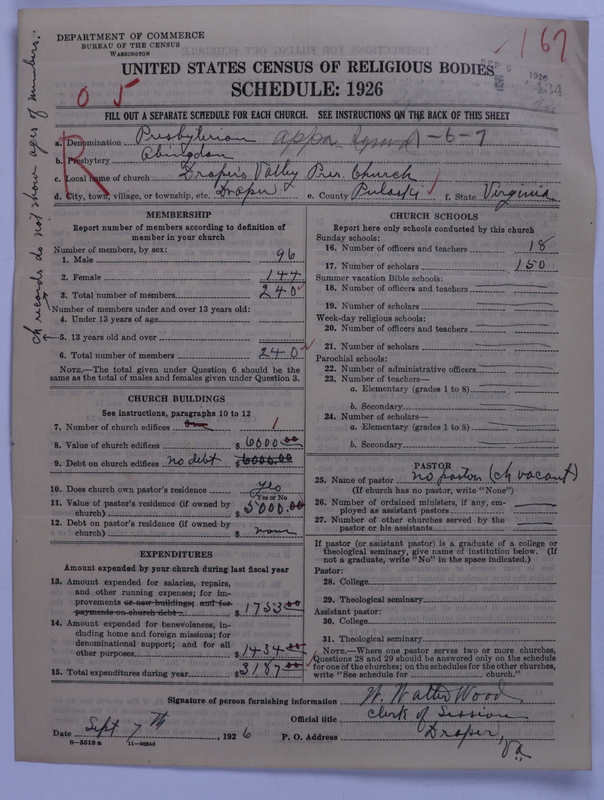 DEPARTMENT OF COMMERCE
BUREAU OF THE CENSUS
WASHINGTON
167
1926
UNITED STATES CENSUS OF RELIGIOUS BODIES
SCHEDULE: 1926
05
R
FILL OUT A SEPARATE SCHEDULE FOR EACH CHURCH. SEE INSTRUCTIONS ON THE BACK OF THIS SHEET
Ch records do not show ages of members.
a. Denomination Presbyterian -6-7
b. Presbytery Abingdon
c. Local name of church Drapers Valley Pres. Church
d. City, town, village, or township, etc. Draper e. County Pulaski f. State Virginia
MEMBERSHIP
Report number of members according to definition of
member in your church
Number of members, by sex:
1. Male 96
2. Female 144
3. Total number of members 240
Number of members under and over 13 years old:
4. Under 13 years of age
5. 13 years old and over
6. Total number of members 240
NOTE.—The total given under Question 6 should be the
same as the total of males and females given under Question 3.
CHURCH BUILDINGS
See instructions, paragraphs 10 to 12
7. Number of church edifices 1
8. Value of church edifices $6000.00
9. Debt on church edifices no debt $6000.00
10. Does church own pastor's residence yes
Yes or No
11. Value of pastor's residence (if owned by
church) $5000.00
12. Debt on pastor's residence (if owned by
church) $ none
EXPENDITURES
Amount expended by your church during last fiscal year
13. Amount expended for salaries, repairs,
and other running expenses; for im-
provements or new buildings; and for
payments on church debt $1753.00
14. Amount expended for benevolences, in-
cluding home and foreign missions; for
denominational support; and for all
other purposes $1434.00
15. Total expenditures during year $3187.00
CHURCH SCHOOLS
Report here only schools conducted by this church
Sunday schools:
16. Number of officers and teachers 18
17. Number of scholars 150
Summer vacation Bible schools:
18. Number of officers and teachers
19. Number of scholars
Week-day religious schools:
20. Number of officers and teachers
21. Number of scholars
Parochial schools:
22. Number of administrative officers
23. Number of teachers—
a. Elementary (grades 1 to 8)
b. Secondary
24. Number of scholars—
a. Elementary (grades 1 to 8)
b. Secondary
PASTOR
25. Name of pastor no pastor (ch vacant)
(If church has no pastor, write "None")
26. Number of ordained ministers, if any, em-
ployed as assistant pastors
27. Number of other churches served by the
pastor or his assistants
If pastor (or assistant pastor) is a graduate of a college or
theological seminary, give name of institution below. (If
not a graduate, write "No" in the space indicated.)
Pastor:
28. College
29. Theological seminary
Assistant pastor:
30. College
31. Theological seminary
NOTE.—Where one pastor serves two or more churches,
Questions 28 and 29 should be answered only on the schedule
for one of the churches; on the schedules for the other churches,
write "See schedule for church."
Signature of person furnishing information W. Walter Wood
Official title Clerk of Session
Date Sept 7th, 1926 P. O. Address Draper, Va.
8—5516 a